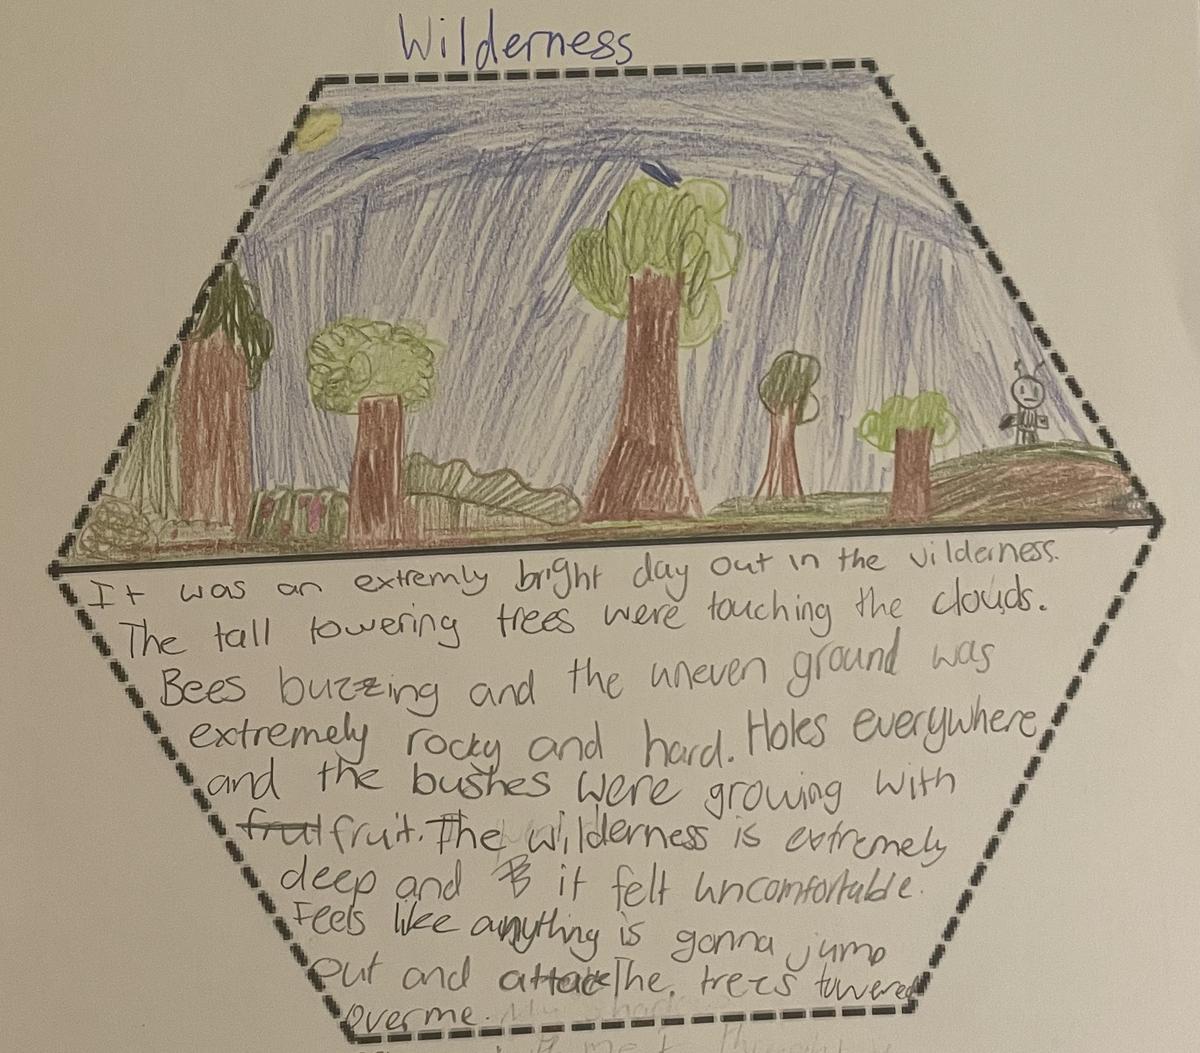 Wilderness
It was an extremly bright day out in the vilderness.
The tall towering trees were touching the clouds.
Bees buzzing and the uneven ground was
extremely rocky and hard. Holes everywhere
and the bushes were growing with
frut fruit. The wilderness is extremely
deep and B it felt uncomfortable.
Feels like anything is gonna jump
out and attack The. trees towered
over me.